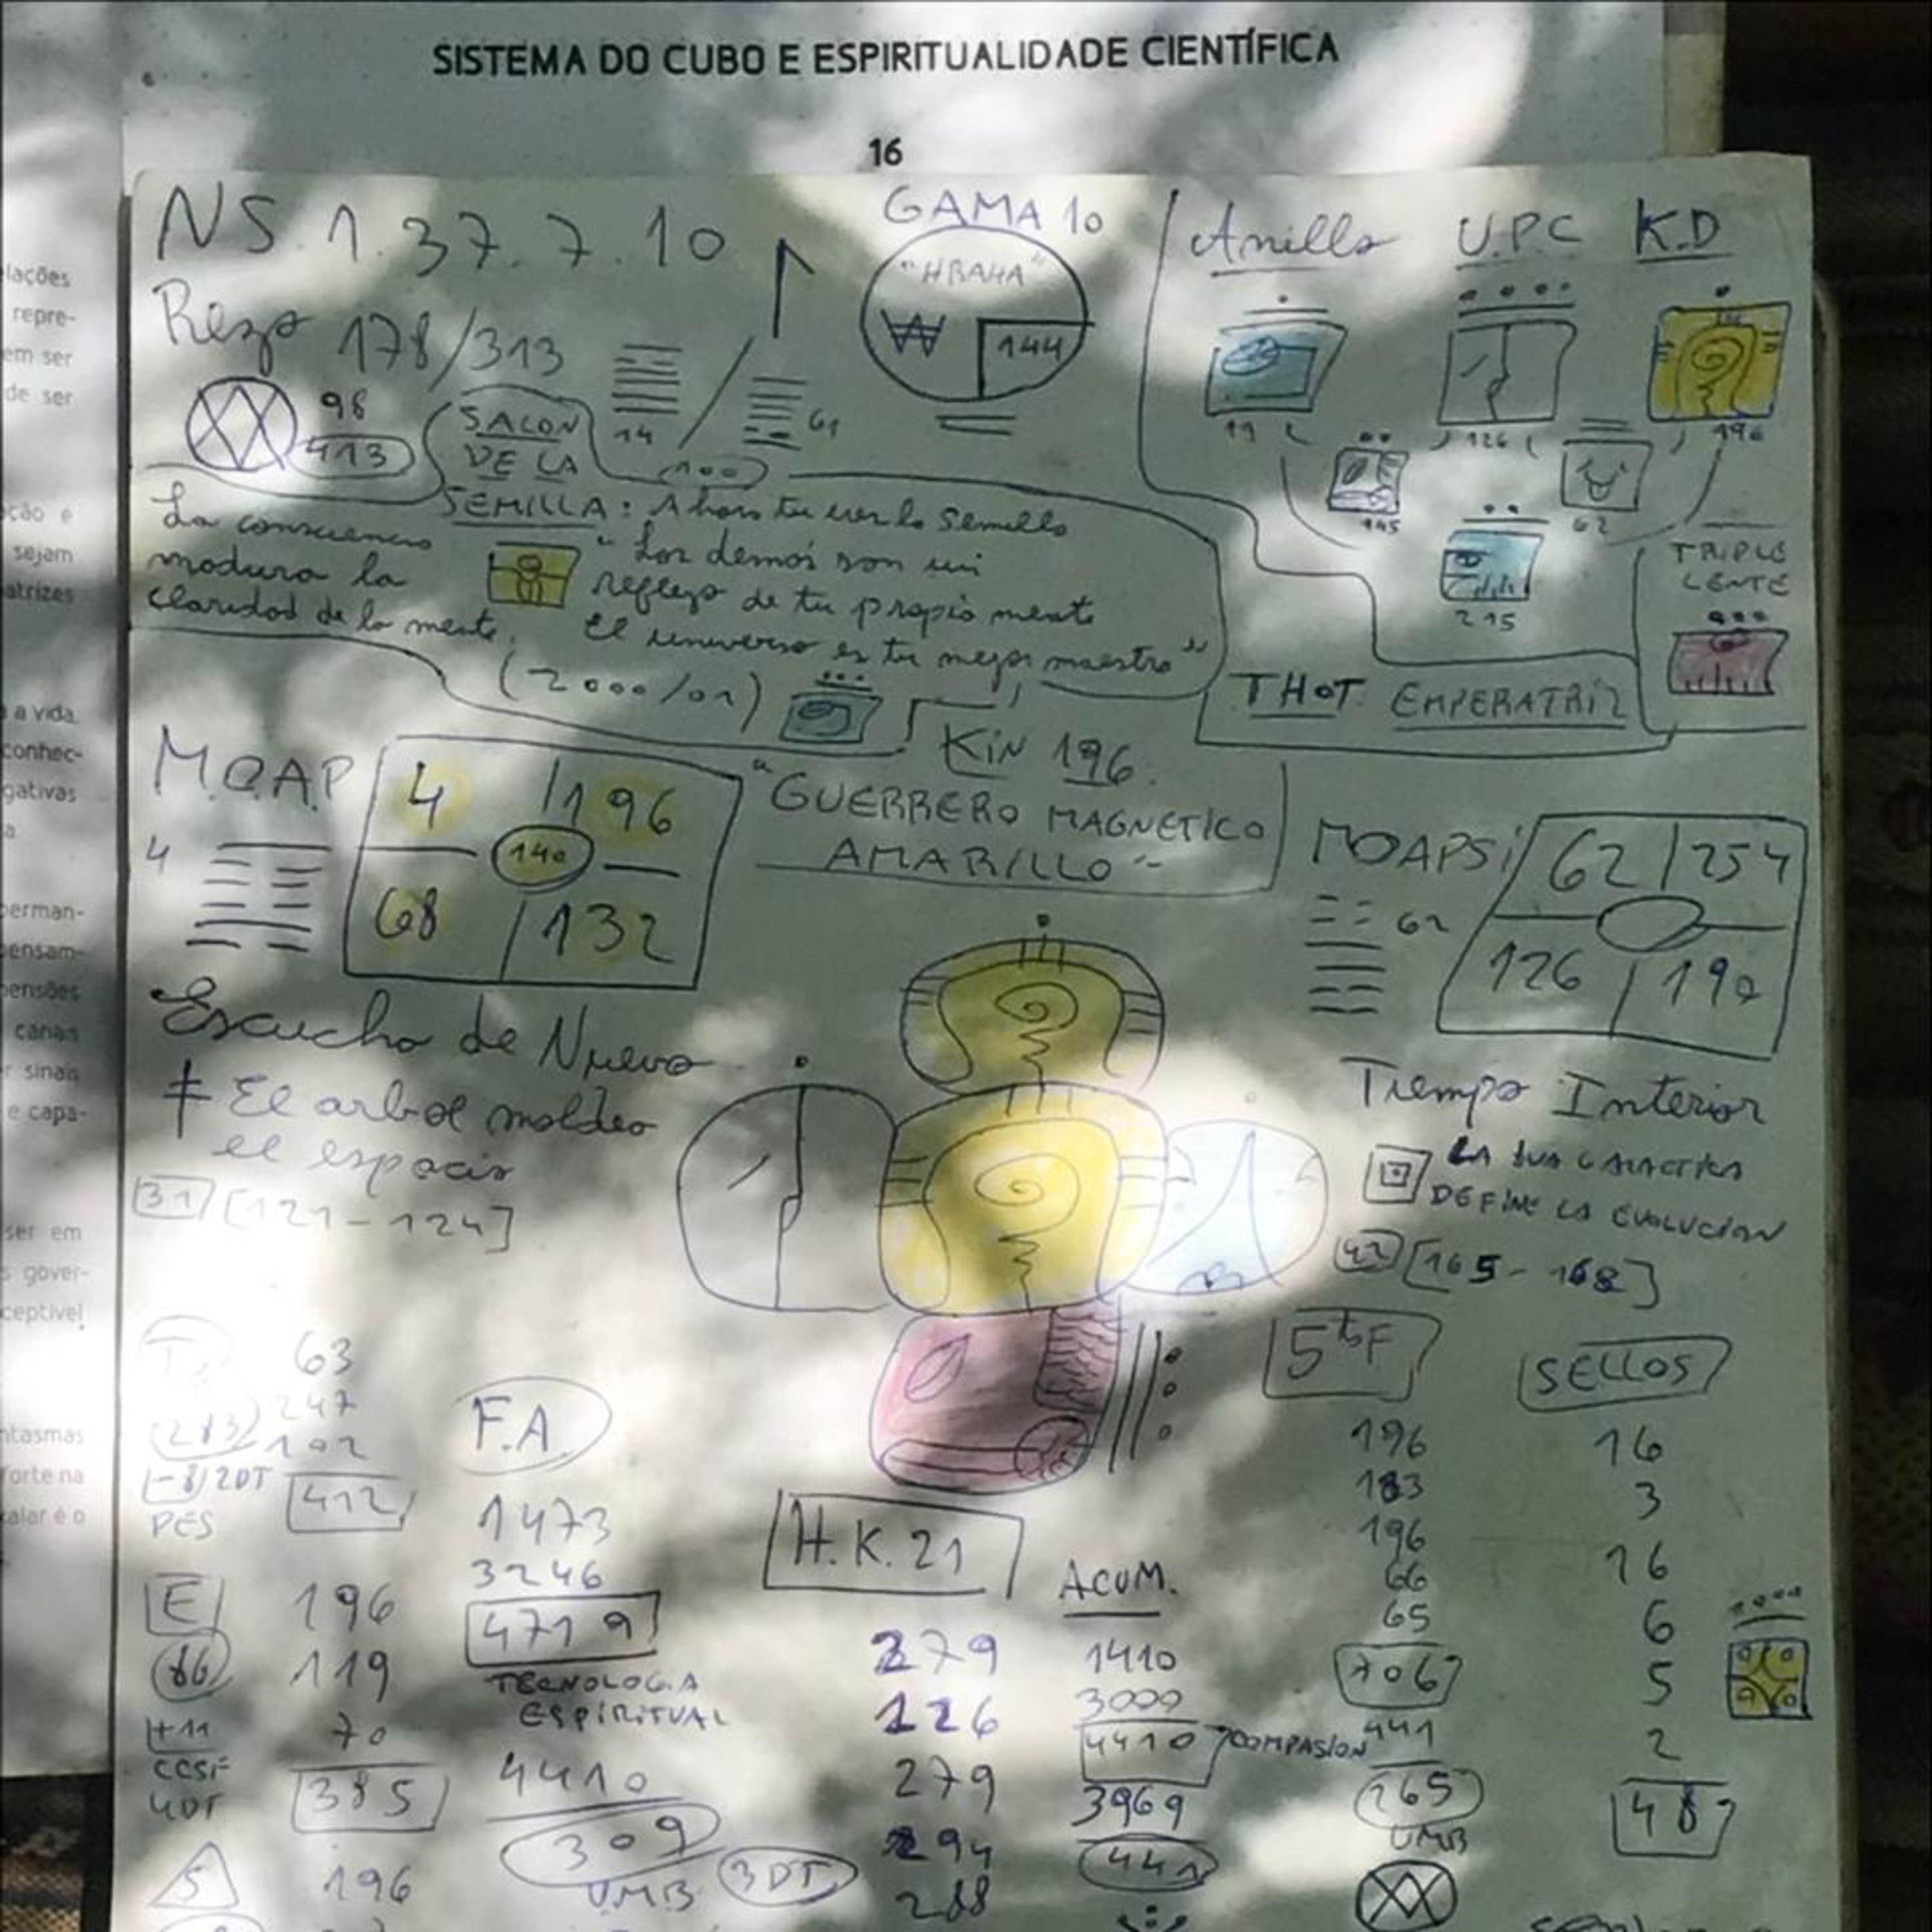 SISTEMA DO CUBO E ESPIRITUALIDADE CIENTÍFICA
16
lações
repre-
em ser
de ser
ção e
sejam
atrizes
a vida,
conhec-
gativas
a
perman-
pensam-
pensões
canais
r sinais
e capa-
ser em
s gover-
ceptível
ntasmas
forte na
calar é o
NS.1.37.7.10
GAMA 10
"HRAHA"
144
Rezo 178/313
14
61
98
413
SALON
DE LA
100
SEMILLA: Ahora tu eres la semilla
La consciencia
madura la
claridad de la mente.
"Los demás son un
reflejo de tu propia mente
El universo es tu mejor maestro"
(2000/01)
Anillo U.P.C K.D
11 126 196
145 62
215
TRIPLE
LENTE
THOT EMPERATRIZ
KIN 196.
"GUERRERO MAGNETICO
AMARILLO"
M.O.A.P
4 196
140
68 132
4
MOAPSI
62 254
126 190
62
Escucho de Nuevo
El arbol moldea
el espacio
31 [121-124]
Tiempo Interior
LA LUA GALACTICA
DEFINE LA EVOLUCION
42 [165-168]
63
247
102
-8/2DT
412
PES
E 196
66 119
+11 70
CCSF
4DT
385
5 196
F.A.
1473
3246
4719
TECNOLOGIA
ESPIRITUAL
4410
309
U.M.B
3DT
H.K.21
279
126
279
294
288
ACUM.
1410
3000
4410 COMPASION
3969
441
5tªF
196
183
196
66
65
706
441
265
UMB
SELLOS
16
3
16
6
5
2
48